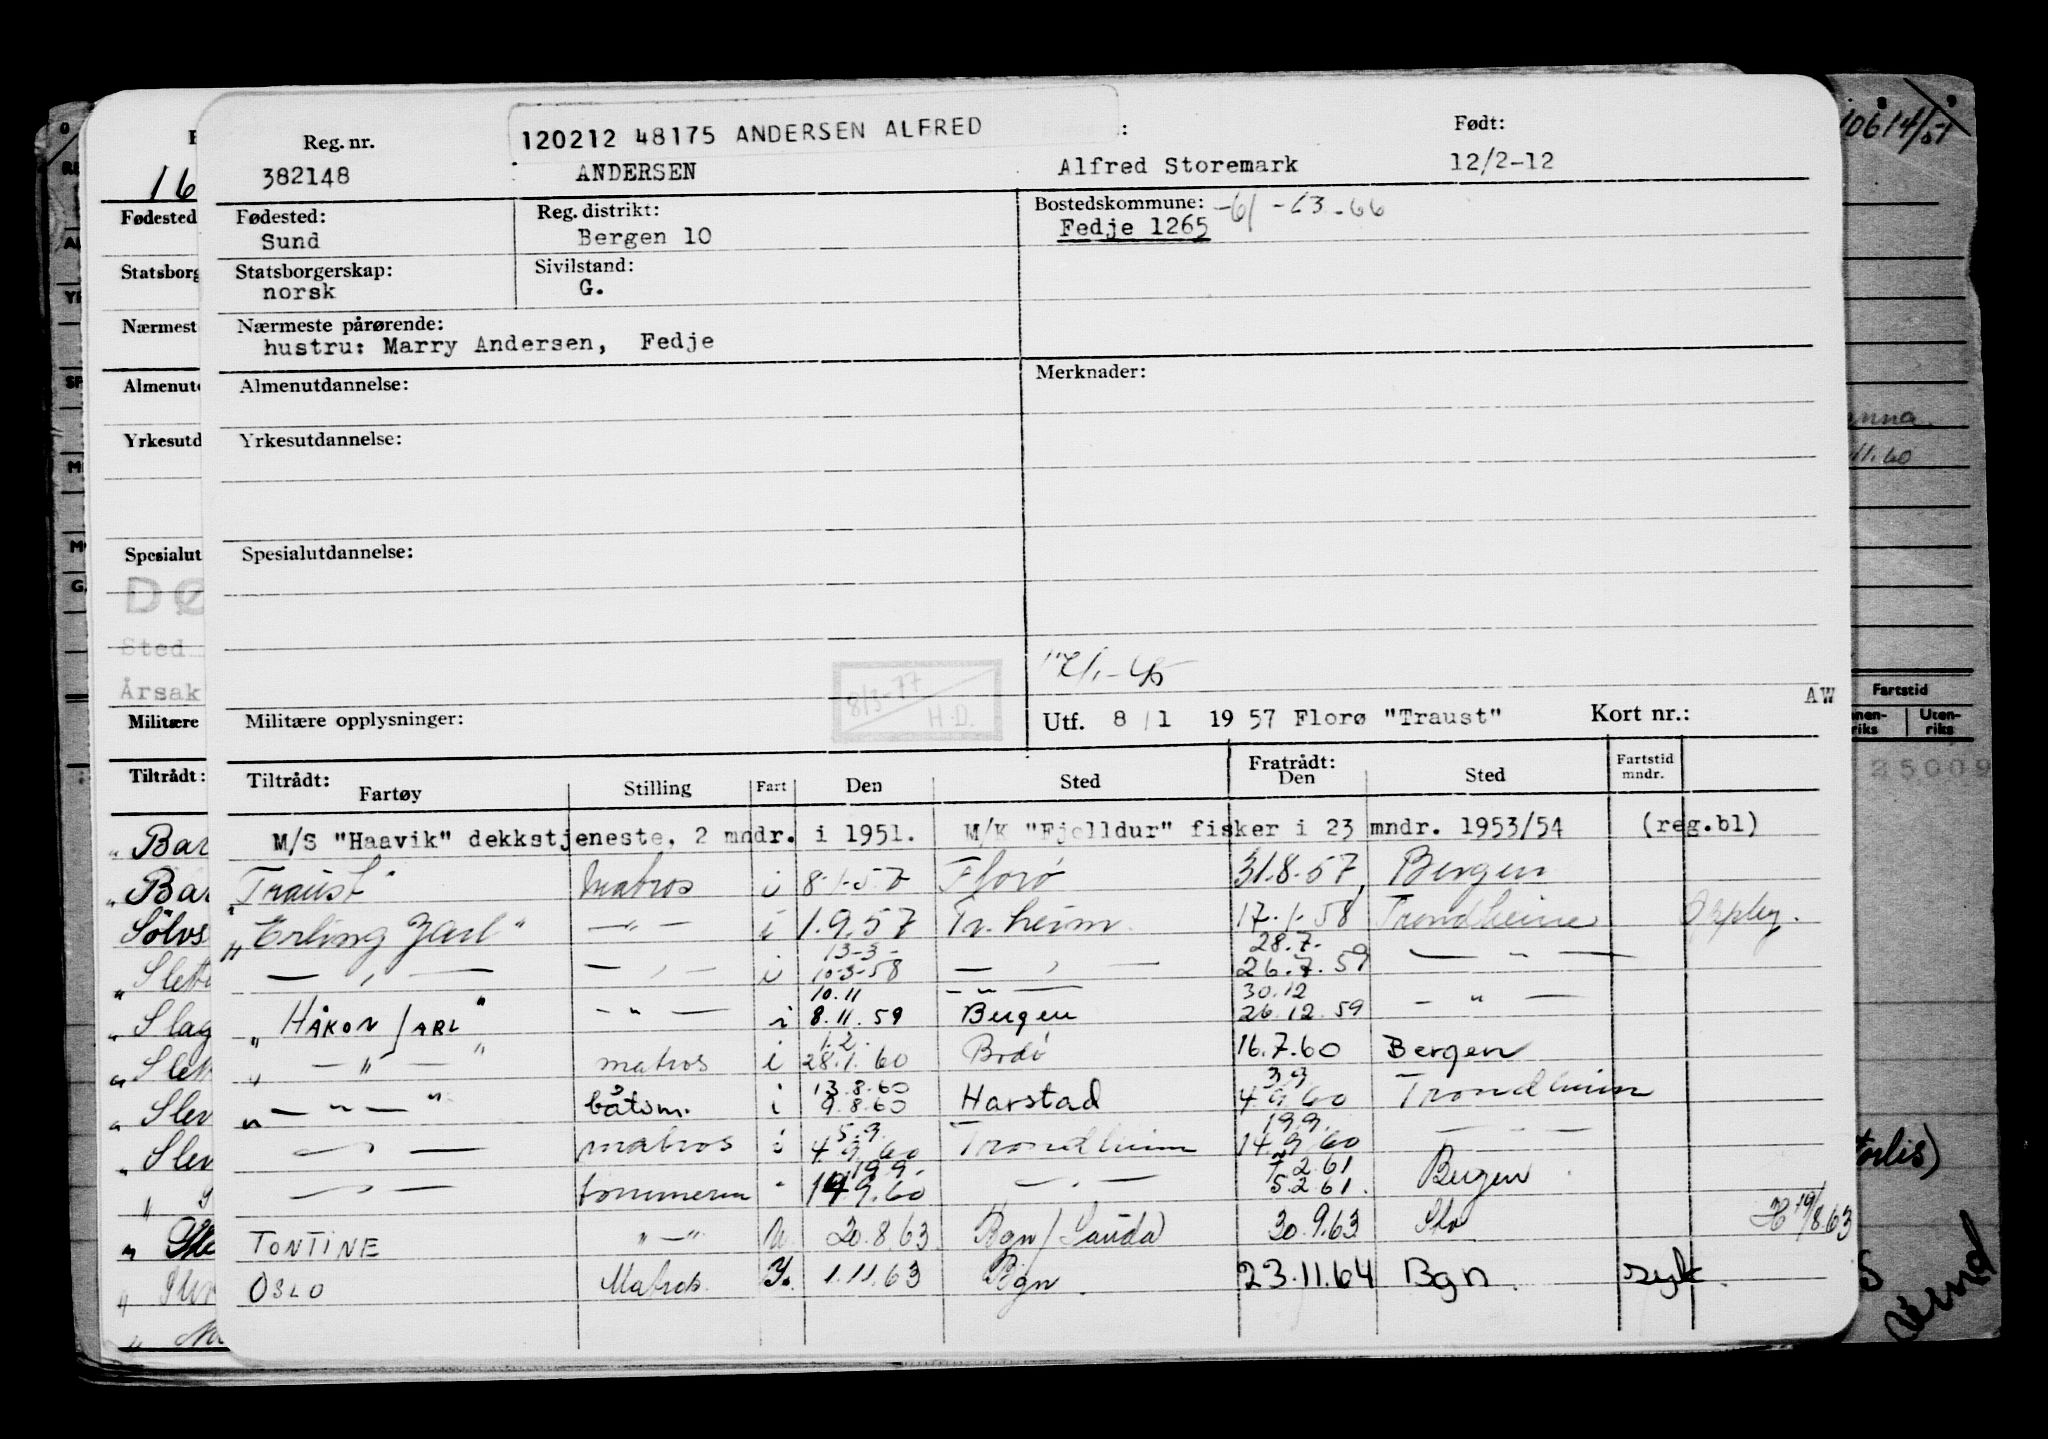 120212 48175 ANDERSEN ALFRED
Reg. nr. Født:
382148 ANDERSEN Alfred Storemark 12/2-12
Fødested: Reg. distrikt: Bostedskommune: -61 -63 -66
Sund Bergen 10 Fedje 1265
Statsborgerskap: Sivilstand:
norsk G.
Nærmeste pårørende:
hustru: Marry Andersen, Fedje
Almenutdannelse: Merknader:
Yrkesutdannelse:
Spesialutdannelse:
8/3-77
H.D.
AW
Militære opplysninger: Utf. 8/1 1957 Florø "Traust" Kort nr.:
Tiltrådt: Fratrådt: Fartstid
Fartøy Stilling Fart Den Sted Den Sted mndr.
M/S "Haavik" dekkstjeneste, 2 mndr. i 1951. M/K "Fjelldur" fisker i 23 mndr. 1953/54 (reg.bl)
"Traust" Matros i 8-1-57 Florø 31.8.57 Bergen
"Erling Jarl" —"— i 1.9.57 Tr.heim 17.1.58 Trondheim
13-3- 28.7.
— " — — " — i 10-3-58 — " — 26.7.59 — " —
10.11 — " — 30.12
"HÅKON JARL" — " — i 8.11.59 Bergen 26.12.59 — " —
1.2.
" — " — " matros i 28.1.60 Bodø 16.7.60 Bergen
13.8.60 3.9
" — " — " båtsm. i 9.8.60 Harstad 4.9.60 Trondheim
5.9. 19.9.
— " — matros i 4.9.60 Trondheim 14.9.60 — " —
19.9. 7.2.61
— " — tømmerm " 14.9.60 — " — 5.2.61. Bergen
TONTINE " — " U. 20.8.63 Bgn/Sauda 30.9.63 H 19/8.63
OSLO Matros. 1.11.63 Bgn. 23.11.64 Bgn. syk.
10614/51
16
Fødested
Statsborg
Nærmest
Almenut
Yrkesutd
Spesialut
DØ
Sted
Årsak
Militære
Tiltrådt:
Fartstid
Uten-
riks
25009
11.60